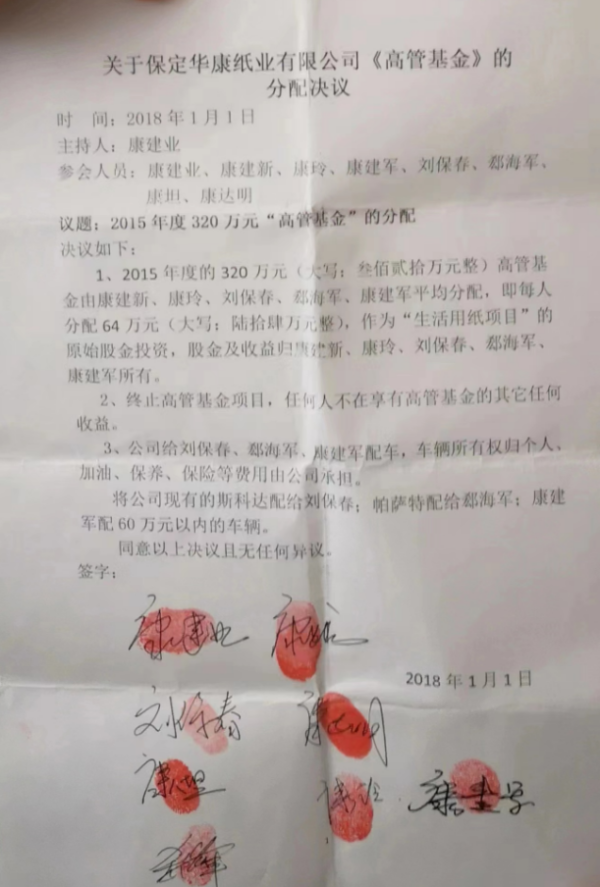 关于保定华康纸业有限公司《高管基金》的
分配决议
时 间：2018年1月1日
主持人：康建业
参会人员：康建业、康建新、康玲、康建军、刘保春、郄海军、
康坦、康达明
议题：2015年度320万元“高管基金”的分配
决议如下：
1、2015年度的320万元（大写：叁佰贰拾万元整）高管基
金由康建新、康玲、刘保春、郄海军、康建军平均分配，即每人
分配64万元（大写：陆拾肆万元整），作为“生活用纸项目”的
原始股金投资，股金及收益归康建新、康玲、刘保春、郄海军、
康建军所有。
2、终止高管基金项目，任何人不在享有高管基金的其它任何
收益。
3、公司给刘保春、郄海军、康建军配车，车辆所有权归个人、
加油、保养、保险等费用由公司承担。
将公司现有的斯科达配给刘保春；帕萨特配给郄海军；康建
军配60万元以内的车辆。
同意以上决议且无任何异议。
签字：
康建业
2018年1月1日
刘保春 康达明
康坦 康玲